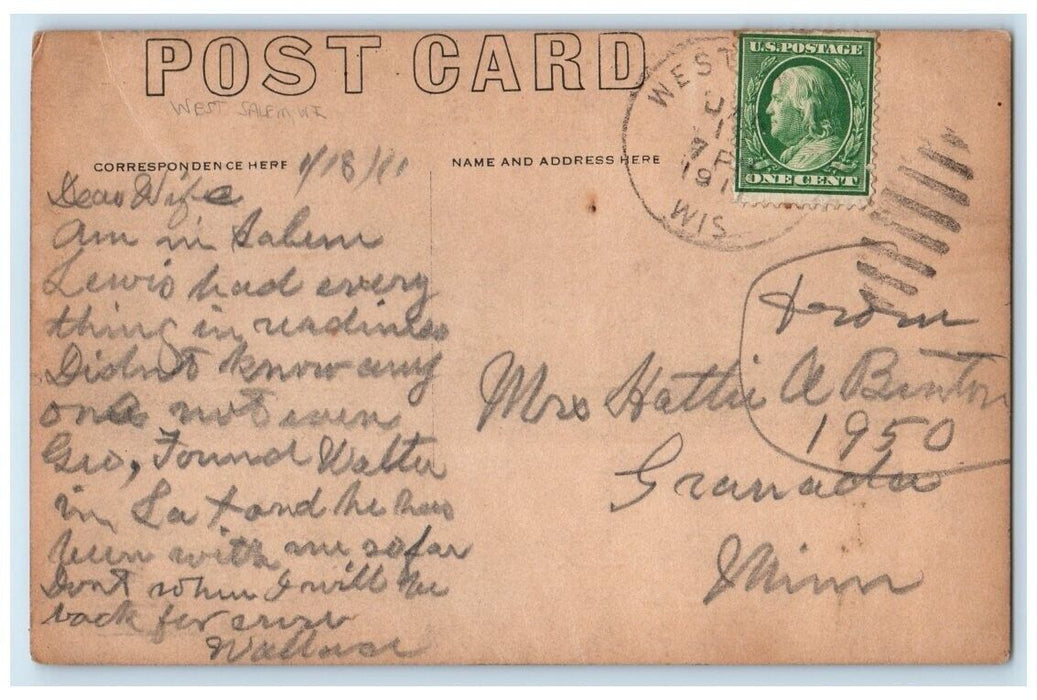 POST CARD
WEST SALEM WI
CORRESPONDENCE HERE
1/18/11
NAME AND ADDRESS HERE
Dear Wife
Am in Salem
Lewis had every
thing in readiness
Didn't know any
one not even
Geo, Found Walter
in La X and he has
been with me so far
Dont when I will be
back for
Wallace
WEST
7 P
191
WIS
U.S. POSTAGE
ONE CENT
from
1950
Mrs Hattie A Benton
Granada
Minn